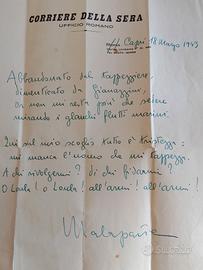 CORRIERE DELLA SERA
UFFICIO ROMANO
Capri, 18 Marzo 1943
Abbandonato dal tappezziere,
dimenticato da Gianazzini,
or non mi resta poi che
mirando i glauchi flutti marini
Qui sul mio scoglio tutto è tristezza:
mi manca l'uomo che mi tappezzi.
A chi rivolgermi? di chi fidarmi?
O Loula! o Loula! all'armi! all'armi!
Malaparte
subito